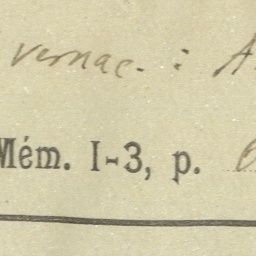 vernac. : A
Mém. I-3, p.